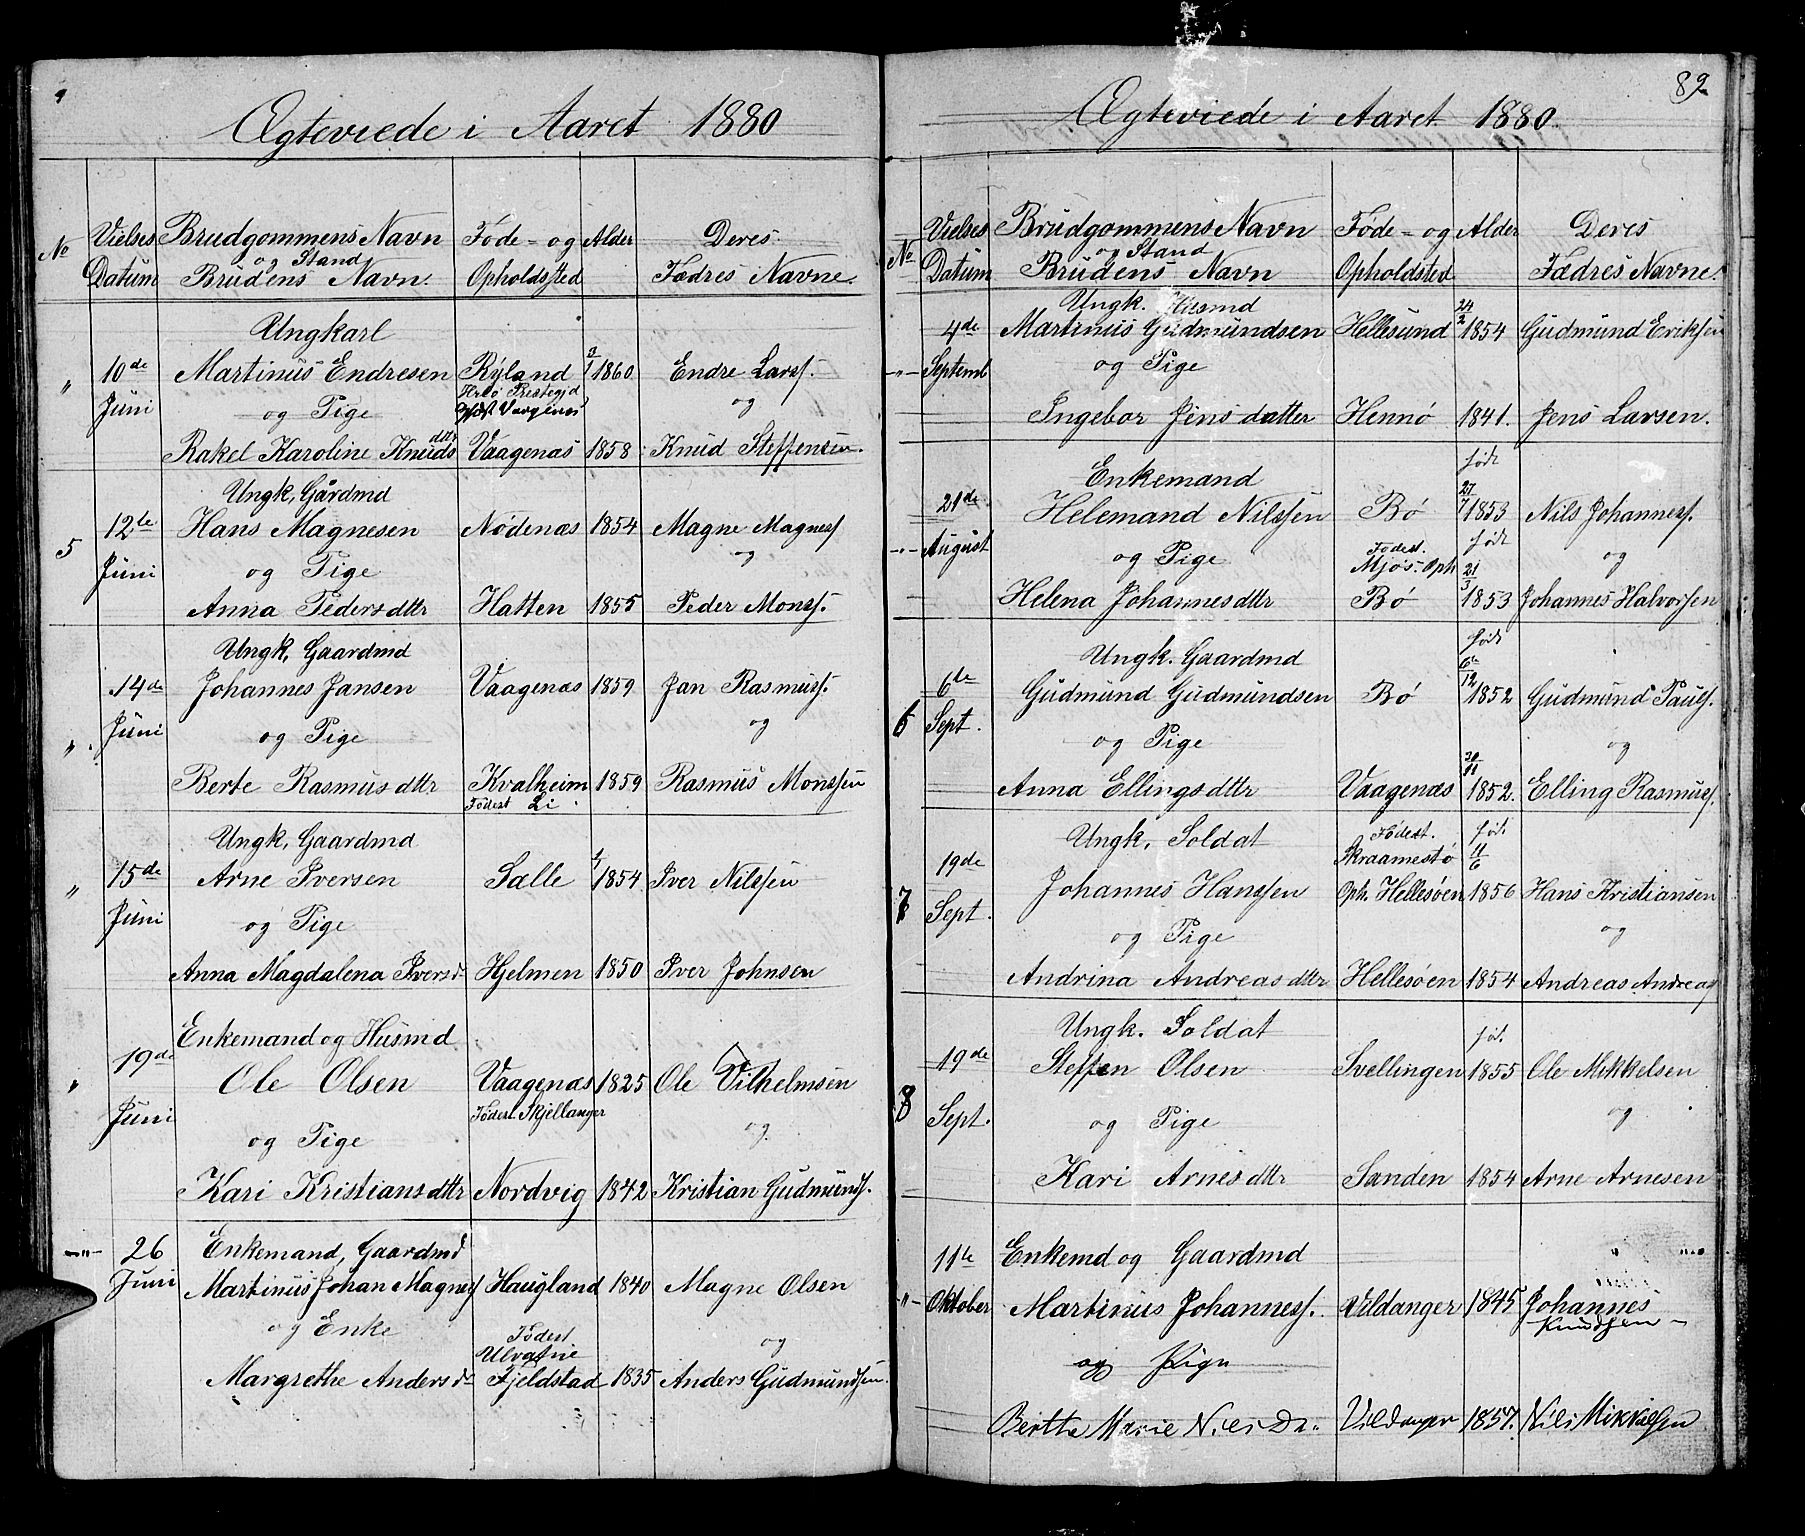 Ægteviede i Aaret 1880
No
Vielses Datum
Brudgommens Navn og Stand
Brudens Navn.
Føde- og Opholdssted
Alder
Deres Fædres Navne.
Ungkarl
" 10de Juni Martinus Endresen Ryland 3/1 1860 Endre Larss.
og Pige og
Rakel Karoline Knudsdttr Vaagenæs 1858 Knud Steffensen.
Ungk, Gårdmd
5 12te Juni Hans Magnesen Nødenæs 1854 Magne Magness
og Pige og
Anna Pedersdttr Hatten 1855 Peder Monss.
Ungk, Gaardmd
" 14de Juni Johannes Jansen Vaagenæs 1859 Jan Rasmuss.
og Pige og
Berte Rasmusdttr Kvalheim 1859 Rasmus Monssen
Fødest Li
Ungk, Gaardmd
" 15de Juni Arne Iversen Sælle 1854 Iver Nilssen
og Pige
Anna Magdalena Iversd. Hjelmen 1850 Iver Johnsen
Enkemand og Husmd
" 19de Juni Ole Olsen Vaagenæs 1825 Ole Vilhelmsen
Fødest. Skjellanger
og Pige og
Kari Kristiansdttr Nordvig 1842 Kristian Gudmunds.
-"- 26 Juni Enkemand, Gaardmd
Martinus Johan Magness Haugland 1840 Magne Olsen
og Enke og
Fødest Ulvatne
Margrethe Andersd. Fjeldstad 1835 Anders Gudmundsen.
89
Ægteviede i Aaret 1880
No
Vielses Datum
Brudgommens Navn og Stand
Brudens Navn
Føde- og Opholdsted
Alder
Deres Fædres Navne.
Ungk. Husmd
-"- 4de Septemb Martinus Gudmundsen Hellesund 24/2 1854 Gudmund Eriksen
og Pige
Ingebor Jensdatter Hennø 1841. Jens Larsen.
Enkemand født
-"- 21de August Helemand Nilssen Bø 27/7 1853 Nils Johanness.
og Pige Fødest. Mjøs- Oph født og
Helena Johannesdttr Bø 21/3 1853 Johannes Halvorsen
Ungk. Gaardmd født
6 6te Sept. Gudmund Gudmundsen Bø 6te/12 1852 Gudmund Pauls.
og Pige og
Anna Ellingsdttr Vaagenæs 20/11 1852. Elling Rasmuss.
Ungk, Soldat Fødest. Skraamestø fød. 11/6
7 19de Sept. Johannes Hanssen Oph. Hellesøen 1856 Hans Kristiansen
og Pige og
Andrina Andreasdttr Hellesøen 1854 Andreas Andreas
Ungk. Soldat fød.
8 19de Sept. Steffen Olsen Svellingen 1855 Ole Mikkelsen
og Pige og
Kari Arnesdttr Sanden 1854 Arne Arnesen
-"- 11te Oktober Enkemd og Gaardmd
Martinus Johanness. Vildanger 1845 Johannes Knudsen
og Pige
Berthe Marie Nilsdr. Vildanger 1857. Nils Mikkelsen